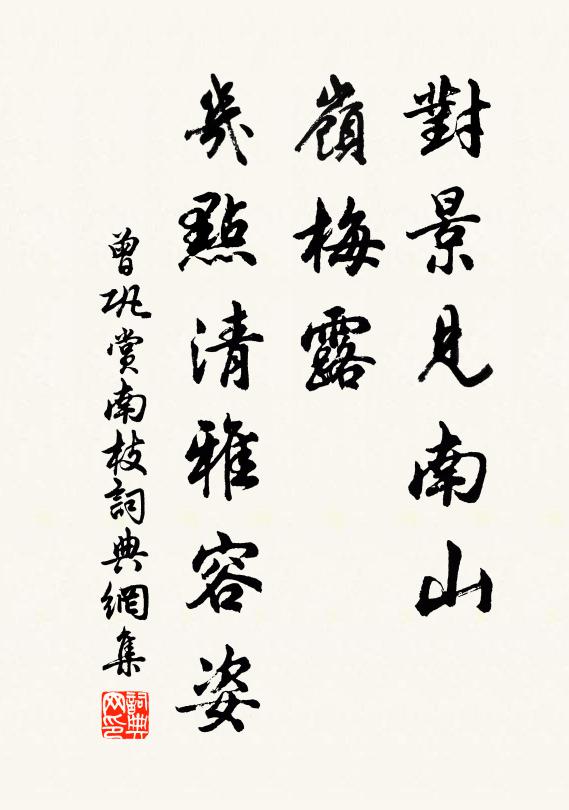 對景見南山
嶺梅露
幾點清雅容姿
曾鞏賞南枝詞典網集
詞典网印